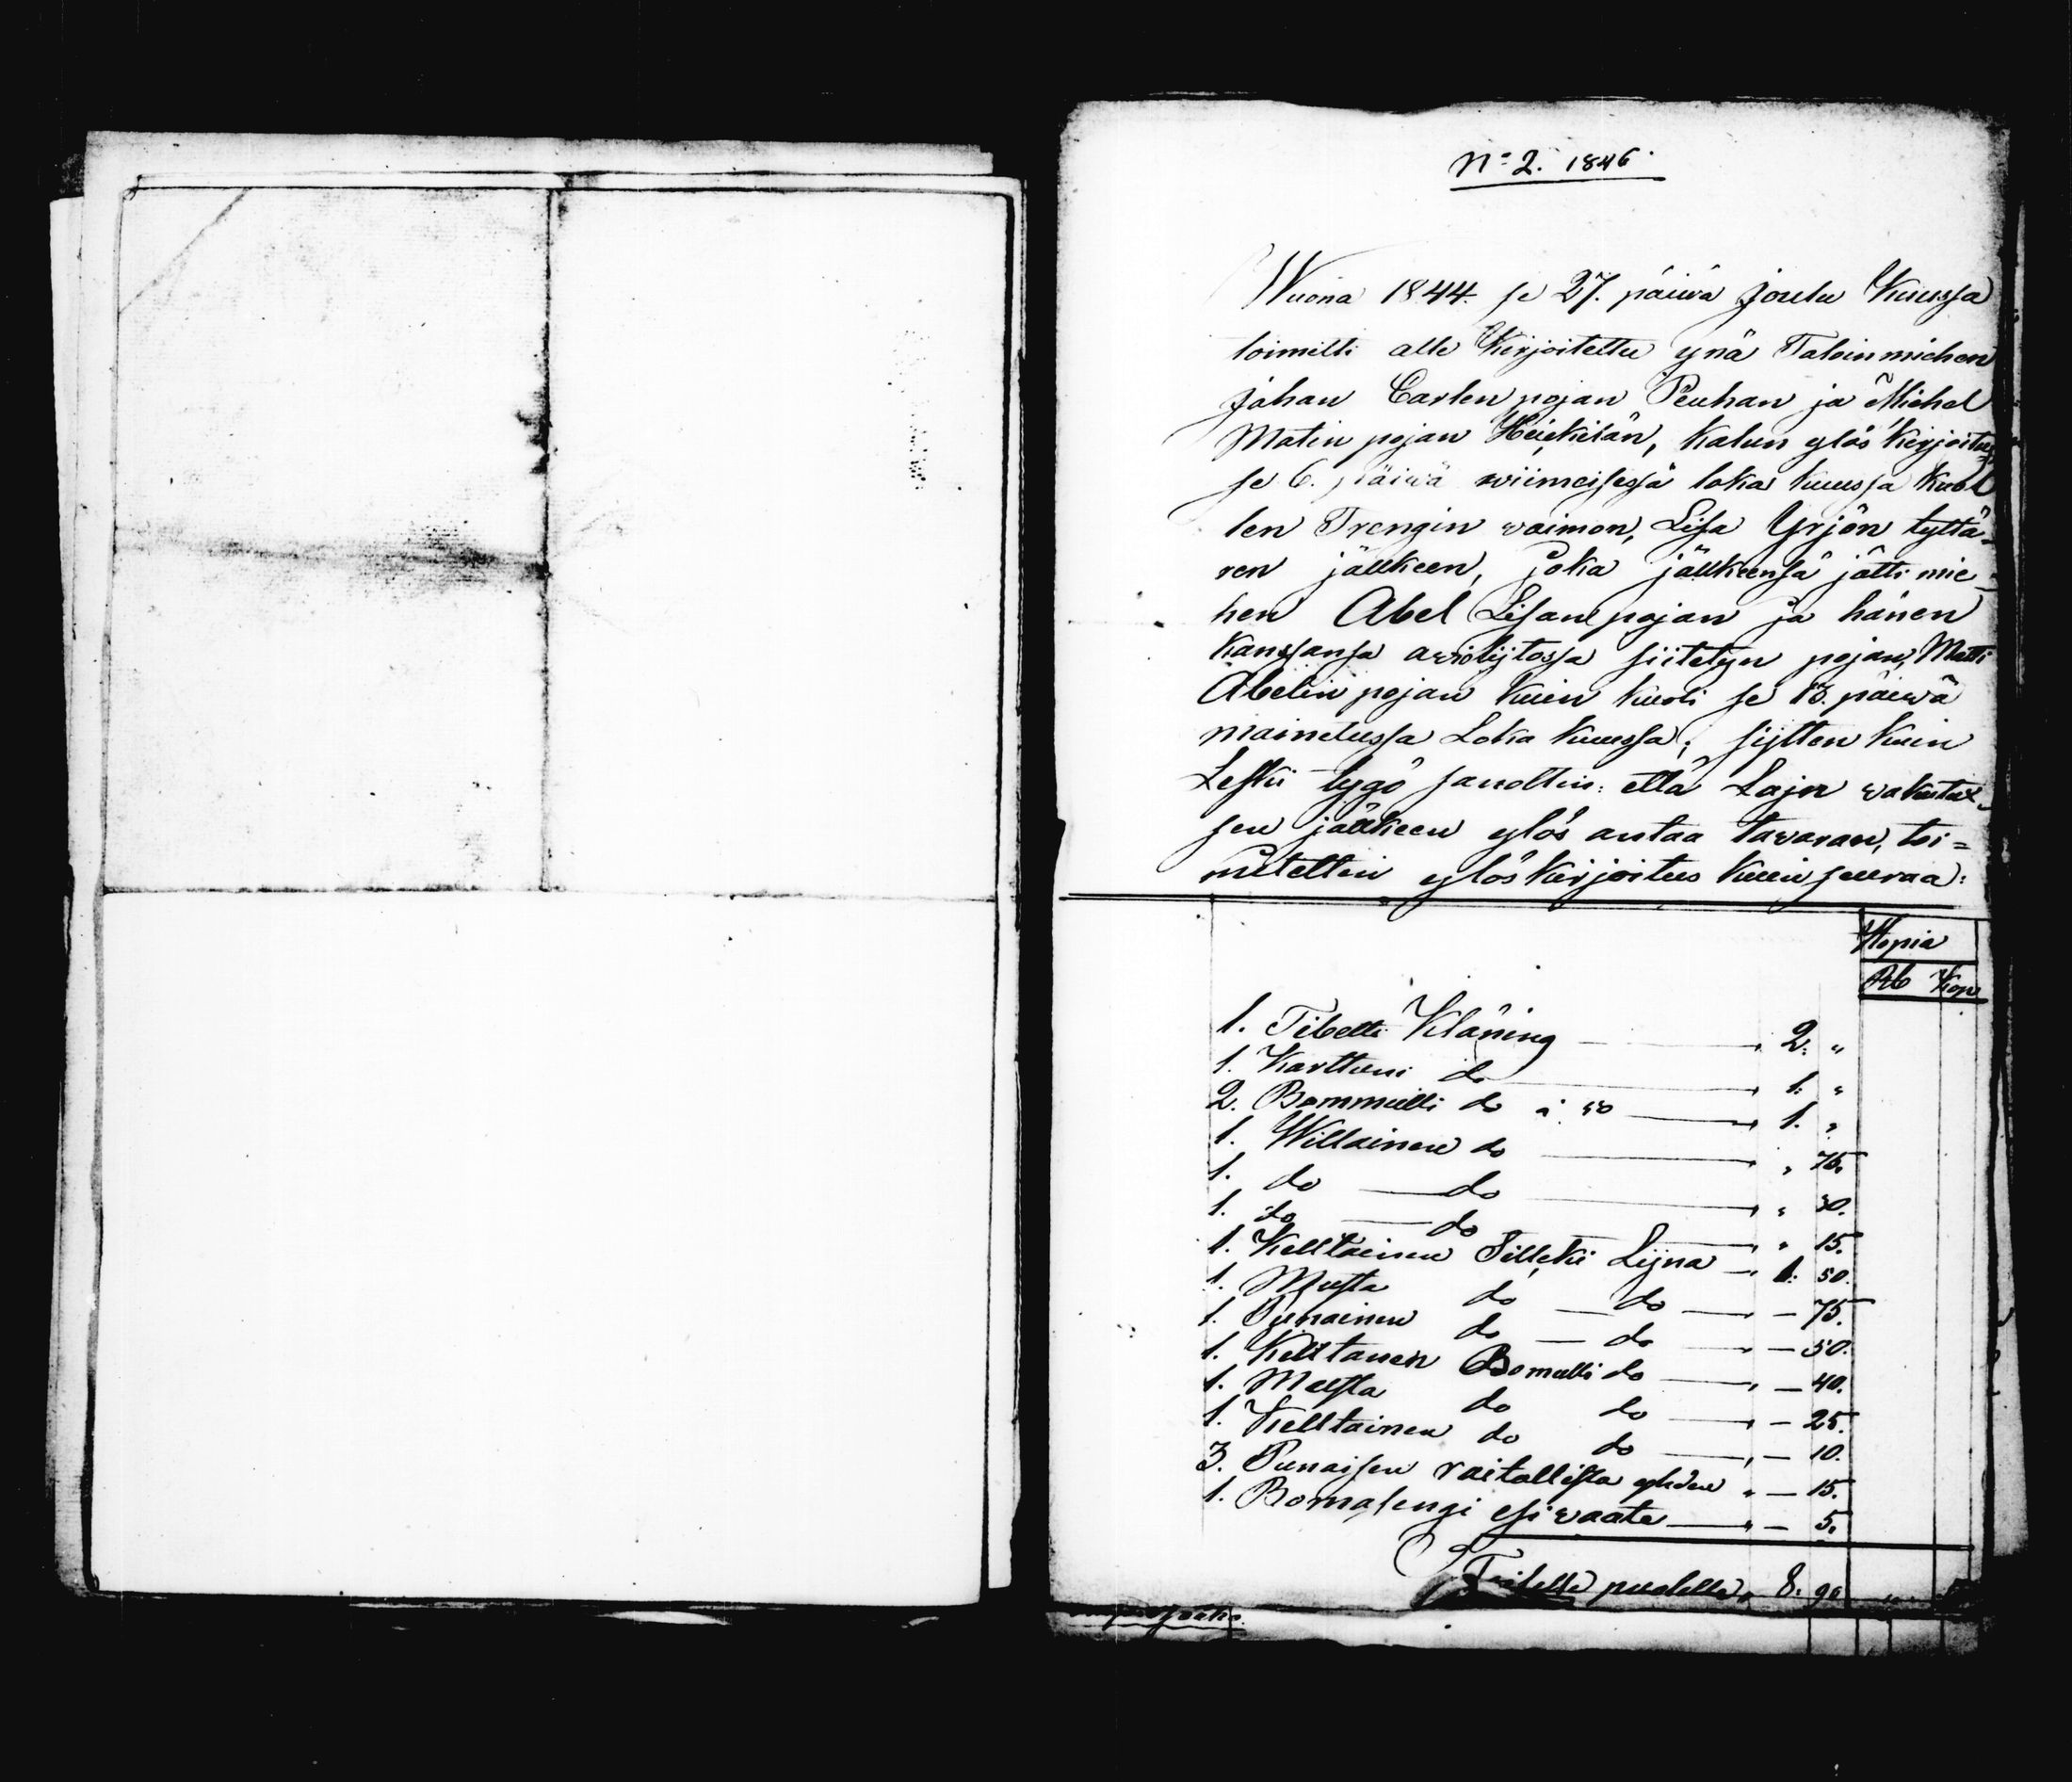 No 2. 1846.
Wuona 1844. se 27. päiwä Joulu Kuussa
toimitti alle Kirjoitettu ynä Taloinmiehen
Johan Carlen pojan Peuhan ja Michel
Matin pojan Heickilän, Kalun ylös Kirjoitus,
se 6. päiwä wiimeisessä loka kuussa kuol
len Trengin waimon, Lisa Yrjön tyttä=
ren jälkeen, joka jälkeensä jätti mie=
hen Abel Lisan pojan ja hänen
kanssansa awiolijtossa siitetyn pojan, Matti
Abelin pojan kuin kuoli se 13. päiwä
mainetussa Loka kuussa; sijtten kuin
Leski tygö sanottin: että Lajn wakutux=
sen jälkeen ylös antaa tawaran, toi=
mitettin ylöskirjoitus kuin seuraa:
Hopia
Rb Kop
1. Tibetti Kläning — 2: "
1. Karttuni do — 1: "
2. Bommulli do a 50 — 1. "
1. Willainen do — " 75.
1. do — do — " 30.
1. do — do — " 15.
1. Kelltainen Silcki Lijna — 1: 50.
1. Musta do — do — — 75.
1. Punainen do — do — — 50.
1. Kelltanen Bomulli do — — 40.
1. Musta do do — — 25.
1. Kelltainen do do — — 10.
3. Punaisen raitallista yhden " — 15.
1. Bomasengi esiwaate — " — 5.
Toiselle puolelle, 8. 90